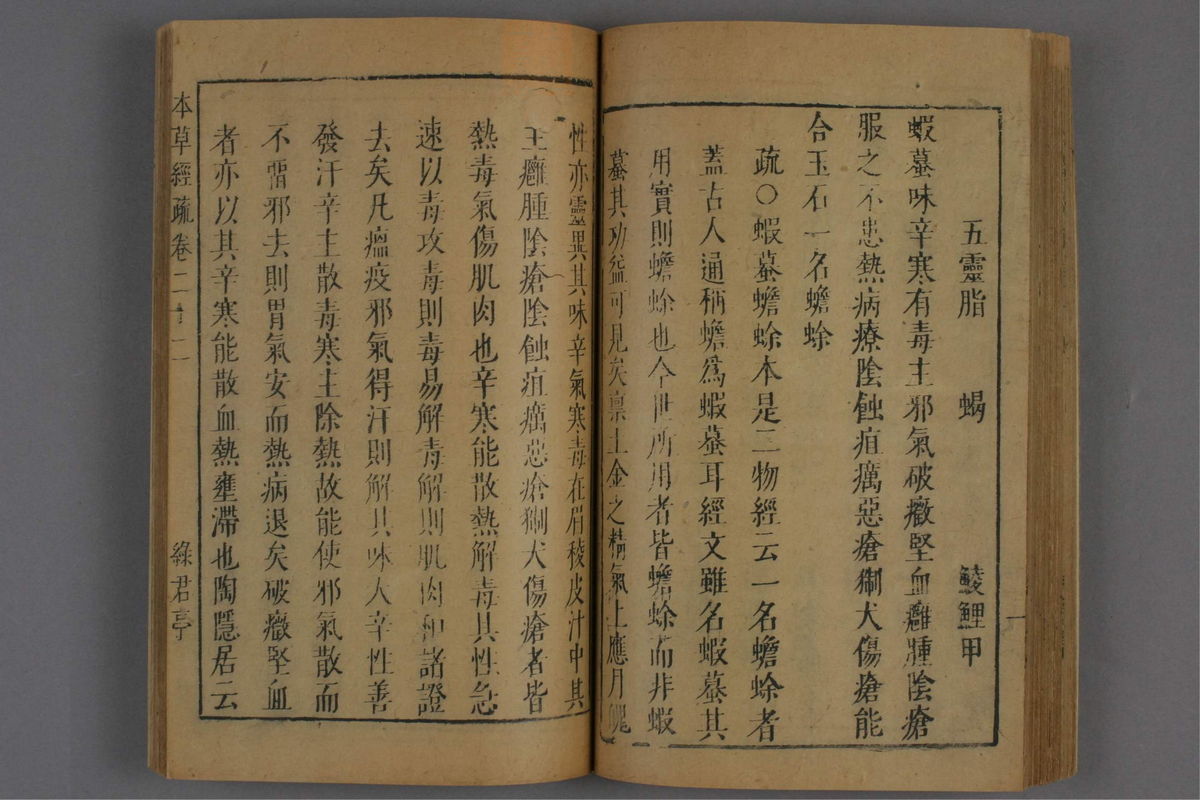 五靈脂 蝎 鯪鯉甲
蝦蟇味辛寒有毒主邪氣破癥堅血癰腫陰瘡
服之不患熱病療陰蝕疽癘惡瘡猘犬傷瘡能
合玉石一名蟾蜍
疏○蝦蟇蟾蜍本是二物經云一名蟾蜍者
蓋古人通稱蟾爲蝦蟇耳經文雖名蝦蟇其
用實則蟾蜍也今世所用者皆蟾蜍而非蝦
蟇其功益可見矣禀土金之精氣上應月魄
性亦靈異其味辛氣寒毒在眉稜皮汁中其
主癰腫陰瘡陰蝕疽癘惡瘡猘犬傷瘡者皆
熱毒氣傷肌肉也辛寒能散熱解毒其性急
速以毒攻毒則毒易解毒解則肌肉和諸證
去矣凡瘟疫邪氣得汗則解其味大辛性善
發汗辛主散毒寒主除熱故能使邪氣散而
不留邪去則胃氣安而熱病退矣破癥堅血
者亦以其辛寒能散血熱壅滯也陶隱居云
本草經疏 卷二十二 綠君亭